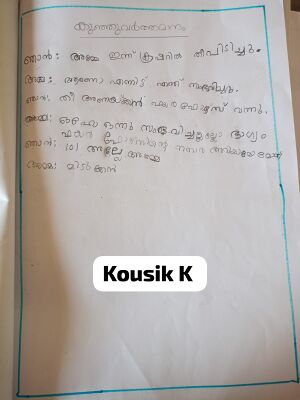 കുഞ്ഞുവർത്തമാനം
ഞാൻ: അമ്മേ ഇന്ന് ക്രഷറിൽ തീപിടിച്ചു.
അമ്മ: ആണോ എന്നിട്ട് എന്ത് സംഭവിച്ചു.
ഞാൻ: തീ അണയ്ക്കാൻ ഫയർ ഫോഴ്സ് വന്നു.
അമ്മ: ഒന്നും സംഭവിച്ചില്ലല്ലോ ഭാഗ്യം
ഫയർ ഫോഴ്സിന്റെ നമ്പർ അറിയാമോ
ഞാൻ: 101 അല്ലേ അമ്മേ
അമ്മ: മിടുക്കൻ
Kousik K